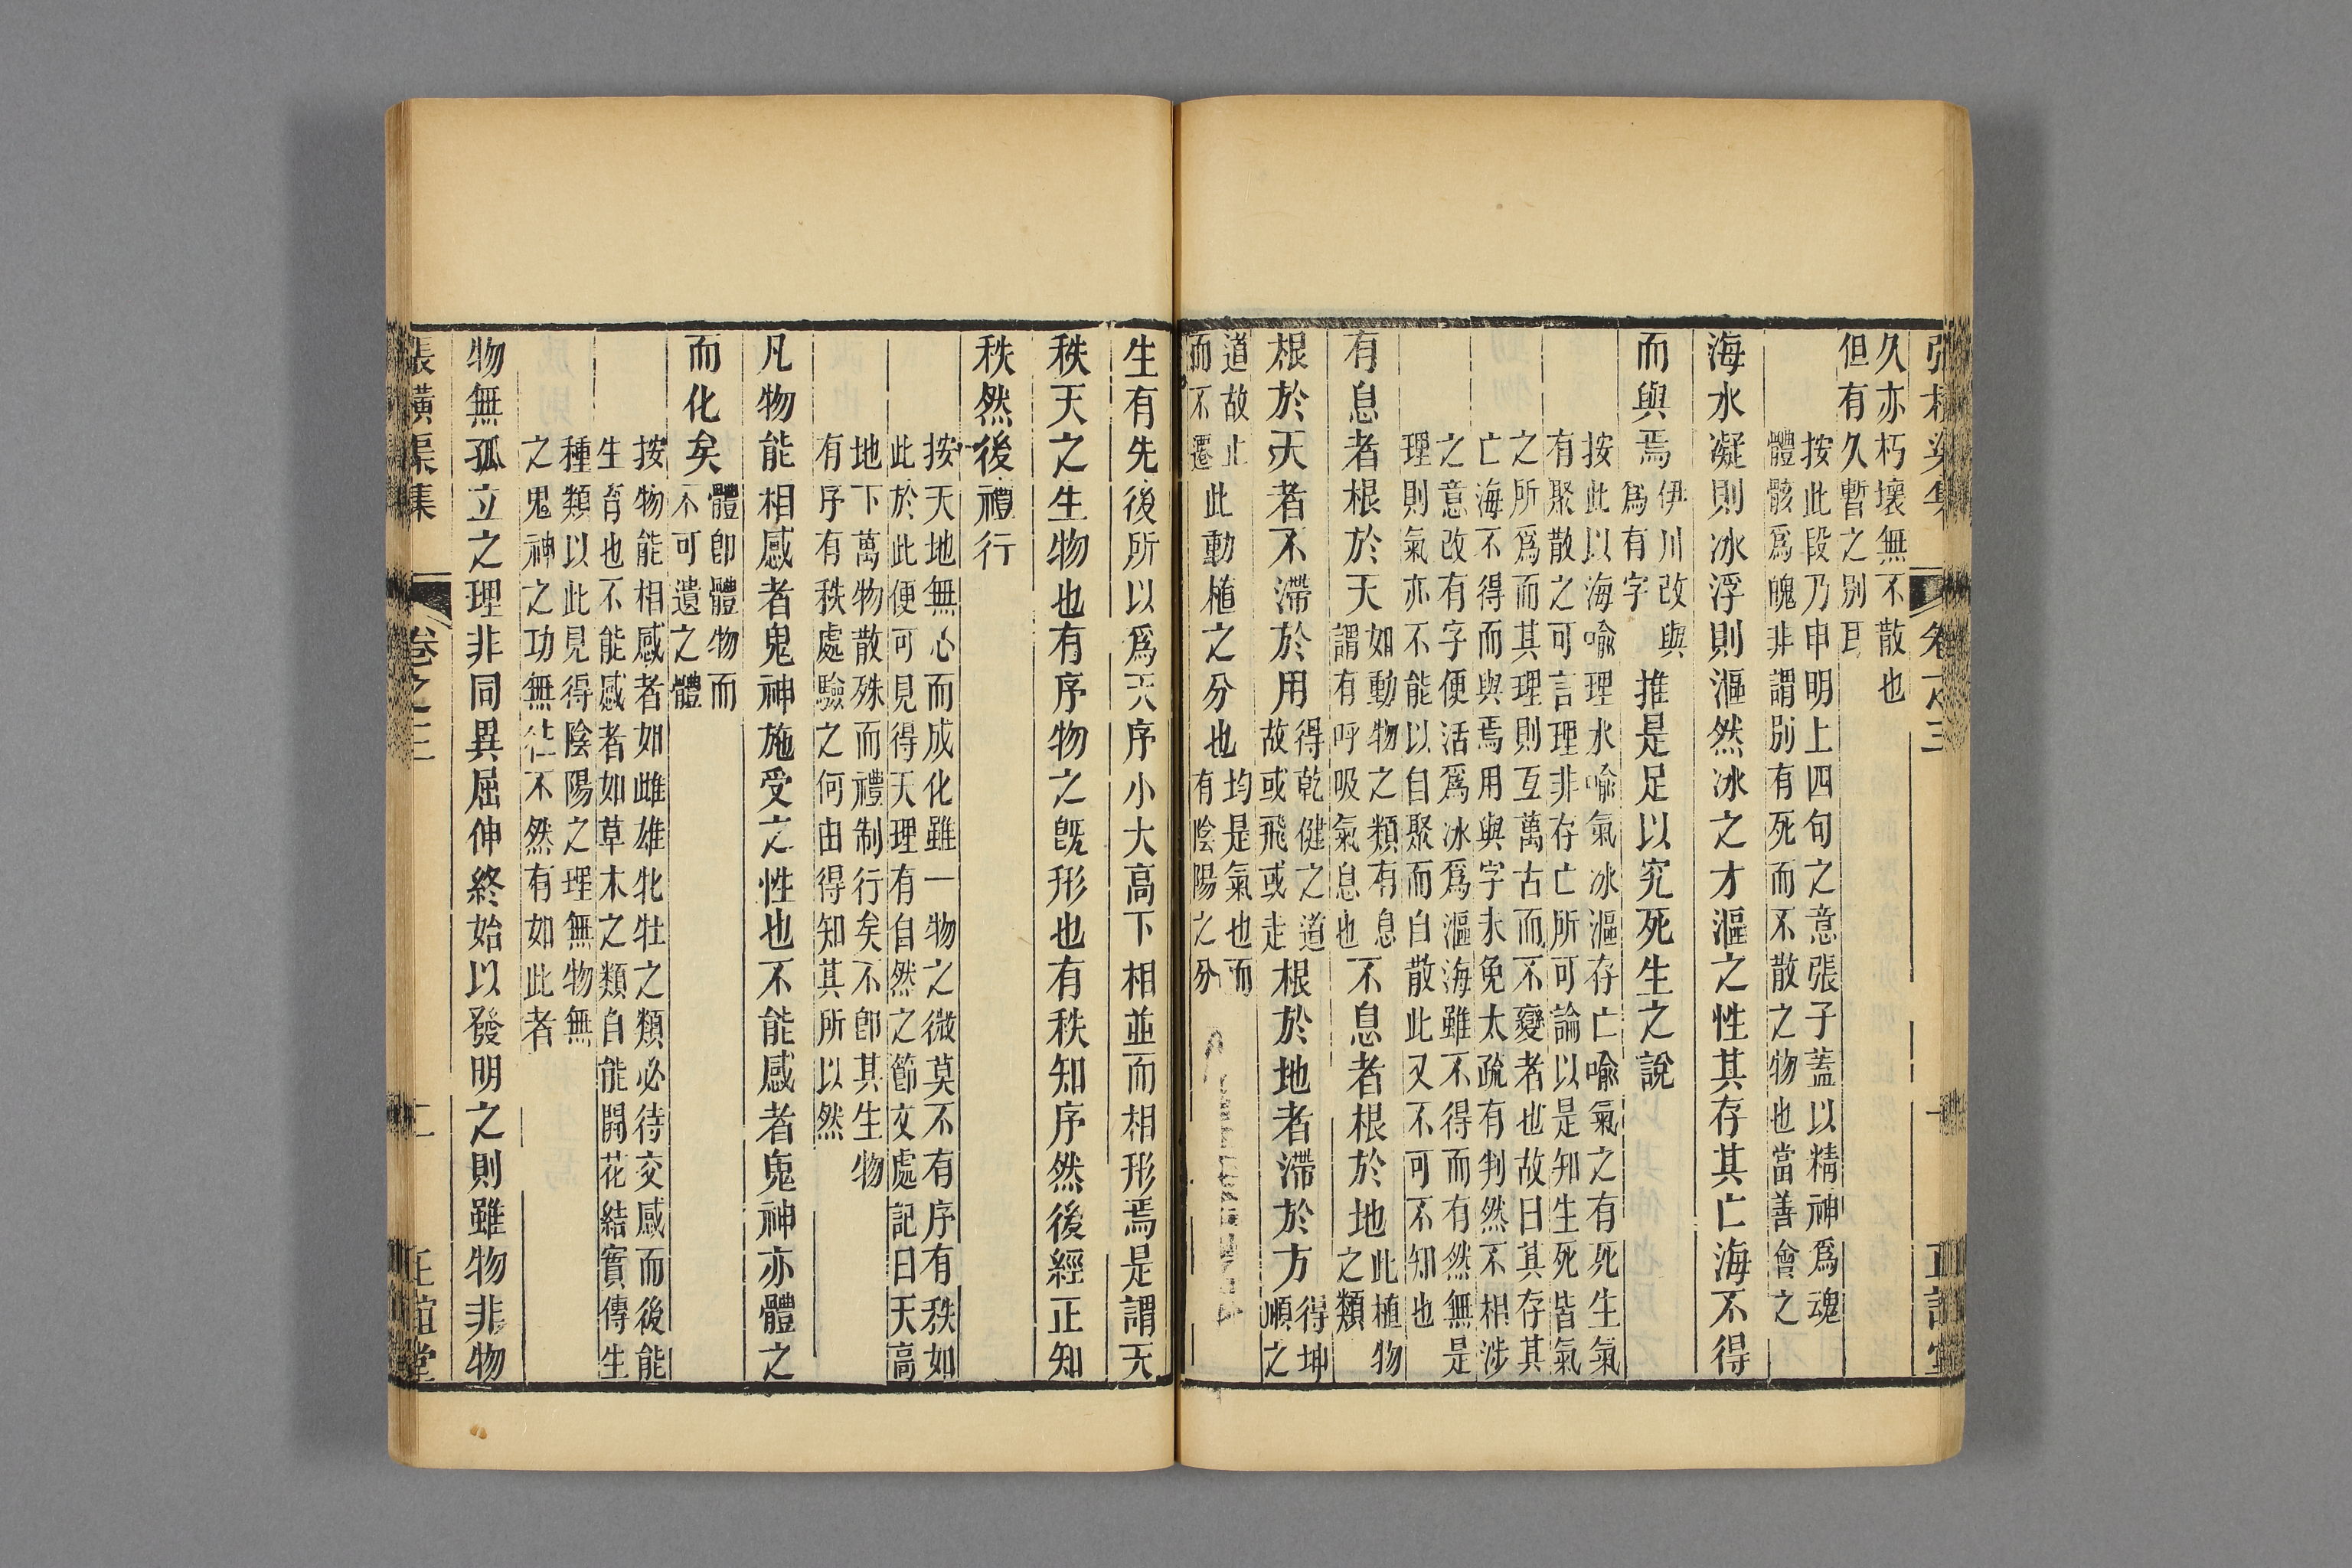 久亦朽壞無不散也
但有久暫之別耳
按此段乃申明上四句之意張子蓋以精神爲魂
體骸爲魄非謂別有死而不散之物也當善會之
海水凝則冰浮則漚然冰之才漚之性其存其亡海不得
而與焉
伊川改與
爲有字
推是足以究死生之說
按此以海喻理水喻氣冰漚存亡喻氣之有死生氣
有聚散之可言理非存亡所可論以是知生死皆氣
之所爲而其理則互萬古而不變者也故曰其存其
亡海不得而與焉用與字未免太疏有判然不相涉
之意改有字便活爲冰爲漚海雖不得而有然無是
理則氣亦不能以自聚而自散此又不可不知也
有息者根於天
如動物之類有息
謂有呼吸氣息也
不息者根於地
此植物
之類
根於天者不滯於用
得乾健之道
故或飛或走
根於地者滯於方
得坤
順之
道故止
而不遷
此動植之分也
均是氣也而
有陰陽之分
生有先後所以爲天序小大高下相並而相形焉是謂天
秩天之生物也有序物之旣形也有秩知序然後經正知
秩然後禮行
按天地無心而成化雖一物之微莫不有序有秩如
此於此便可見得天理有自然之節文處記曰天高
地下萬物散殊而禮制行矣不卽其生物
有序有秩處驗之何由得知其所以然
凡物能相感者鬼神施受之性也不能感者鬼神亦體之
而化矣
體卽體物而
不可遺之體
按物能相感者如雌雄牝牡之類必待交感而後能
生育也不能感者如草木之類自能開花結實傳生
種類以此見得陰陽之理無物無
之鬼神之功無往不然有如此者
物無孤立之理非同異屈伸終始以發明之則雖物非物
張橫渠集
卷之三
二
正誼堂